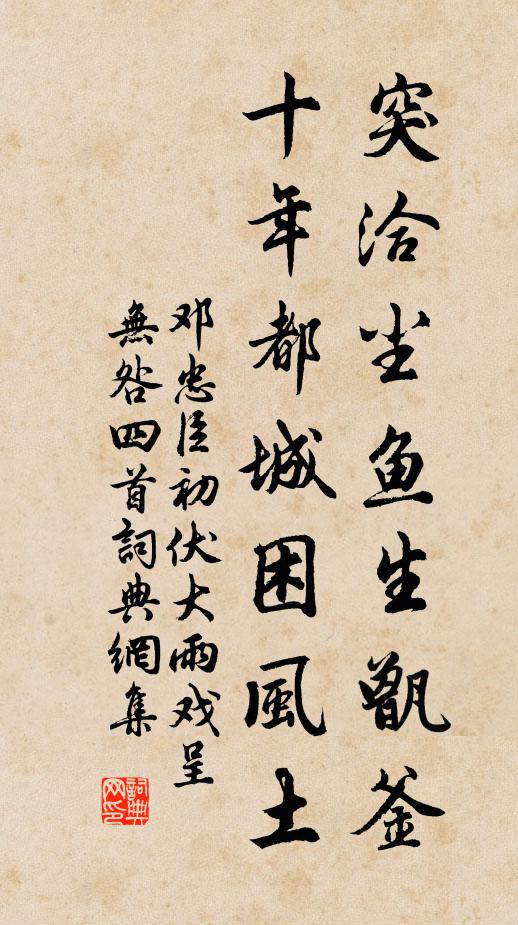 突洽尘鱼生甑釜
十年都城困風土
邓忠臣初伏大雨戏呈
無咎四首詞典網集
詞典
网印